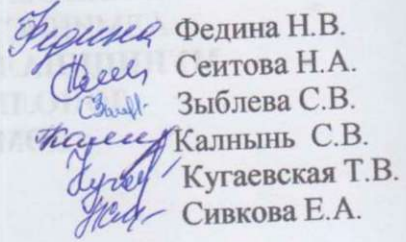 Федина Федина Н.В.
Сеитова Н.А.
Зыблева С.В.
Калнынь С.В.
Кугаевская Т.В.
Сивкова Е.А.